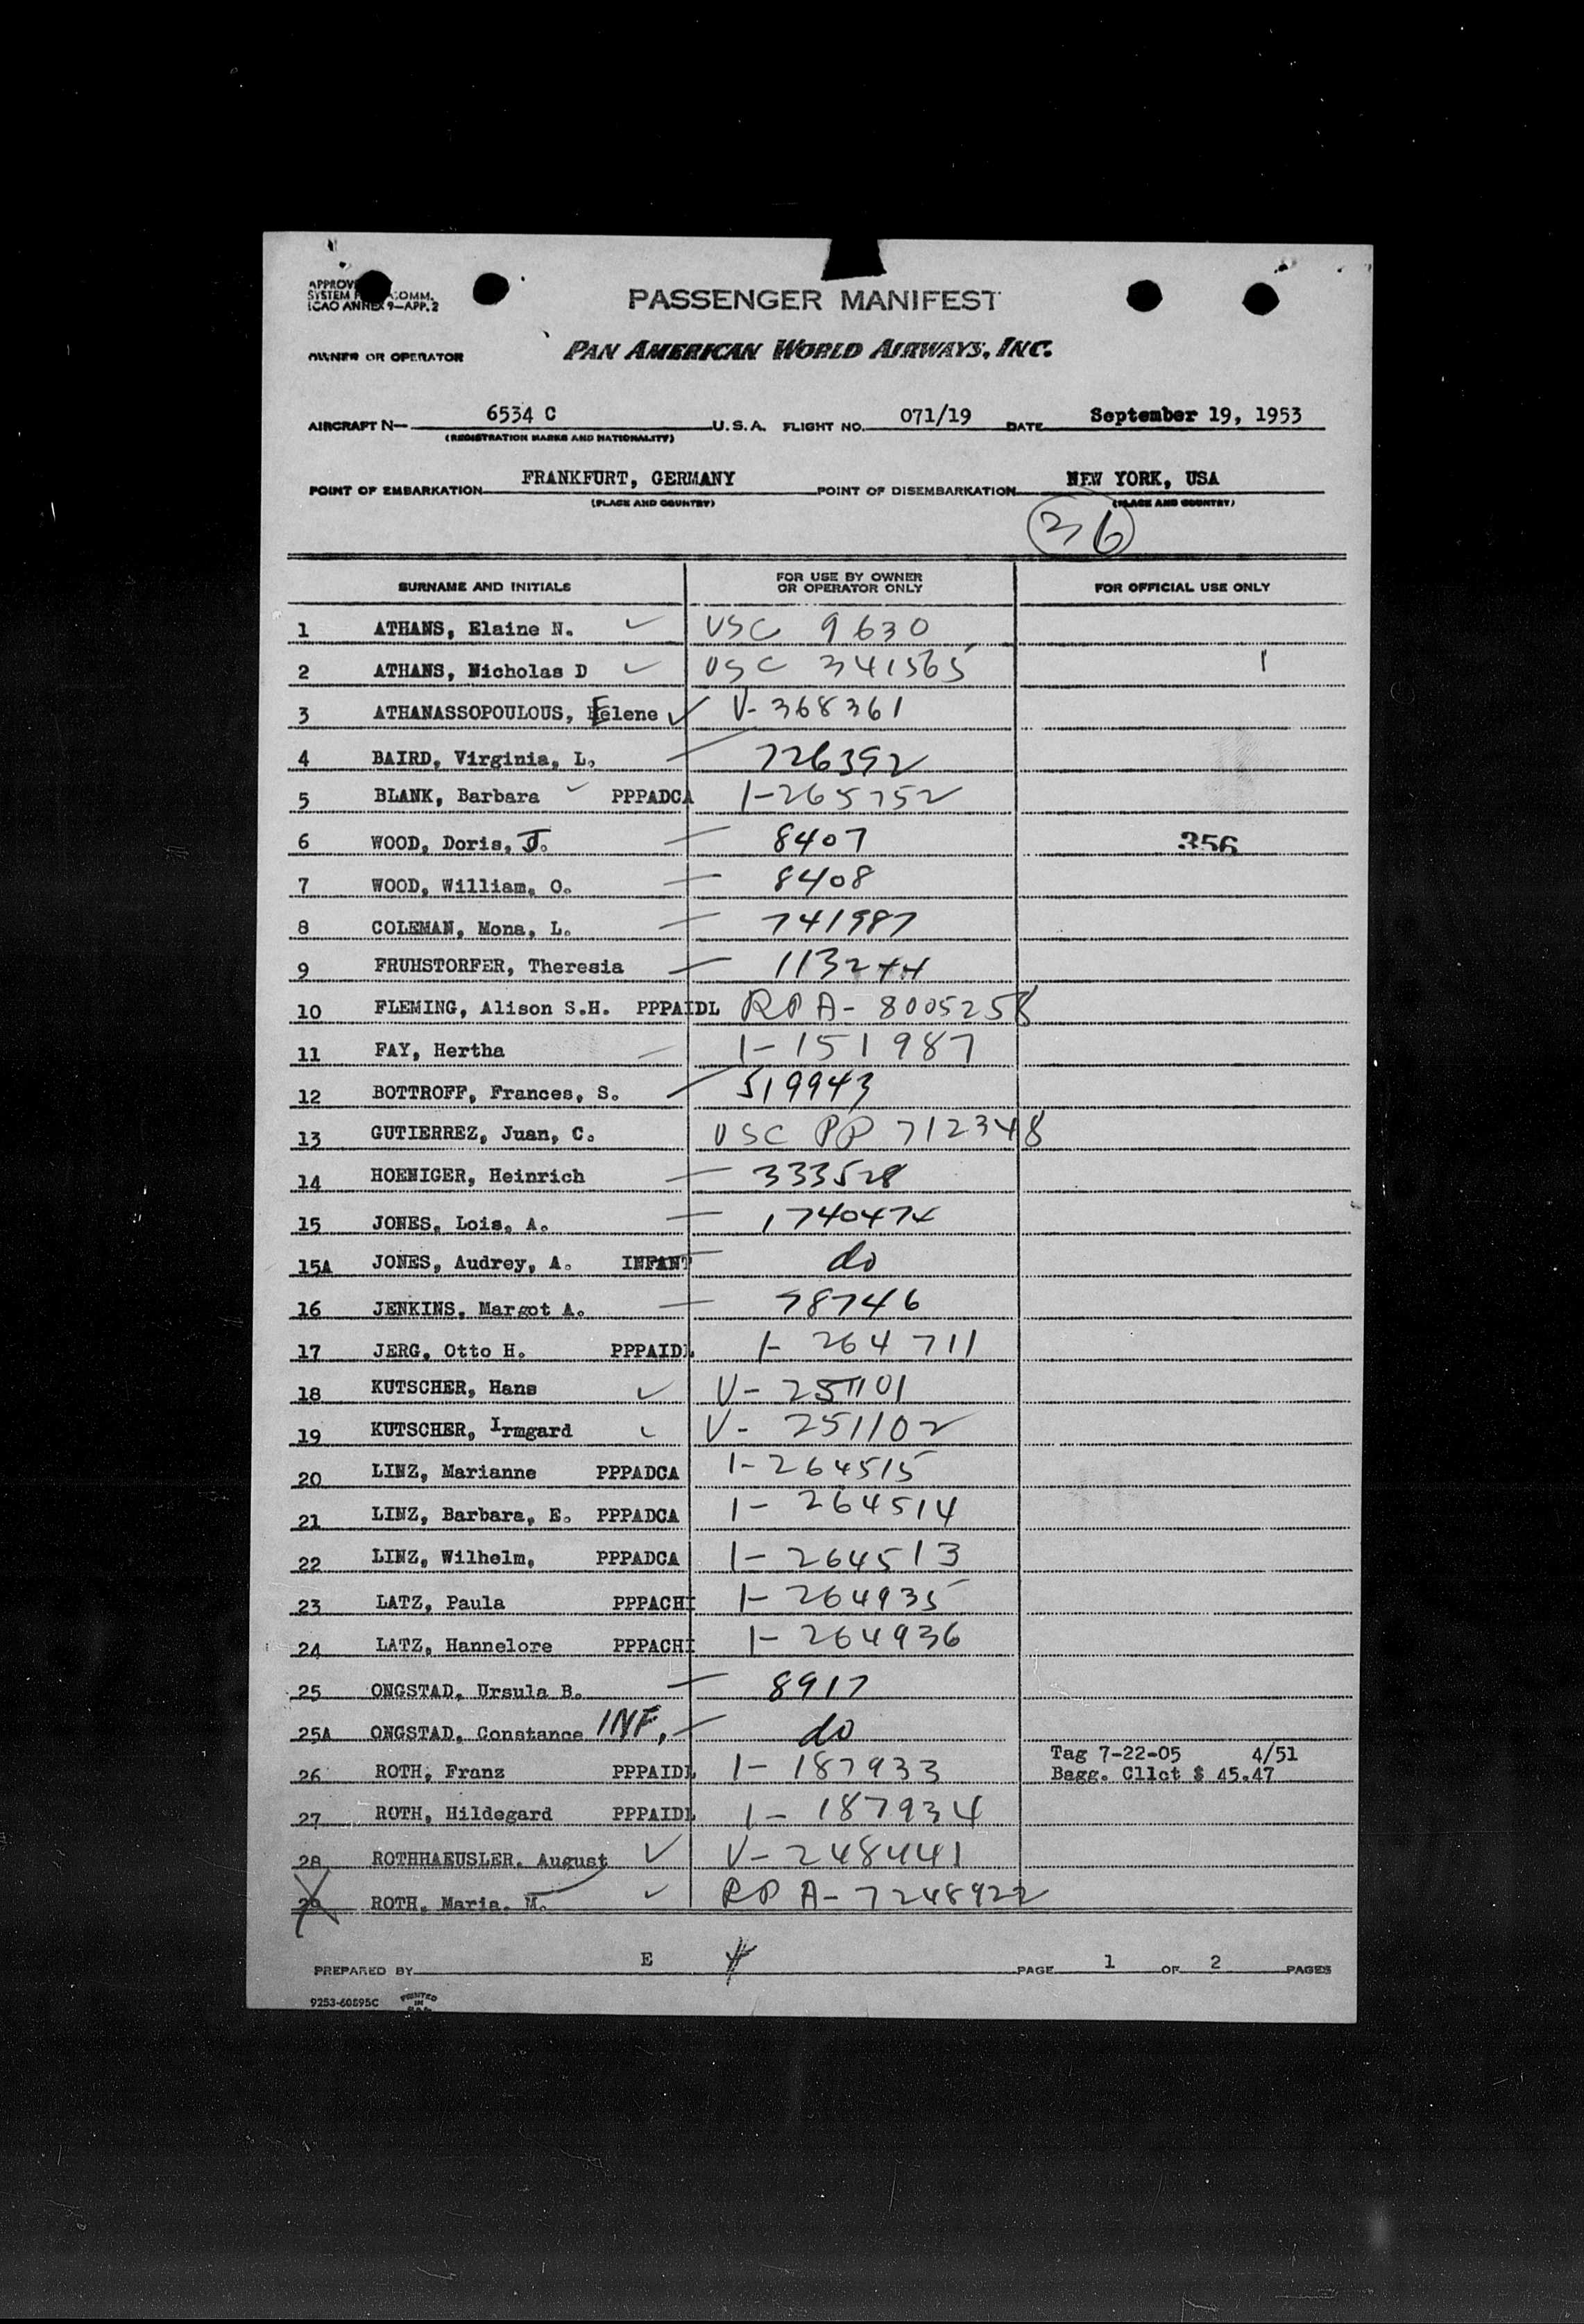 APPROV
SYSTEM F COMM.
ICAO ANNEX 9—APP. 2
PASSENGER MANIFEST
OWNER OR OPERATOR PAN AMERICAN WORLD AIRWAYS, INC.
AIRCRAFT N— 6534 C U.S.A. FLIGHT NO. 071/19 DATE September 19, 1953
(REGISTRATION MARKS AND NATIONALITY)
POINT OF EMBARKATION FRANKFURT, GERMANY POINT OF DISEMBARKATION NEW YORK, USA
(PLACE AND COUNTRY) (PLACE AND COUNTRY)
36
SURNAME AND INITIALS FOR USE BY OWNER OR OPERATOR ONLY FOR OFFICIAL USE ONLY
1 ATHANS, Elaine N. ✓ USC 9630
2 ATHANS, Nicholas D ✓ USC 341565 1
3 ATHANASSOPOULOUS, Elene ✓ V-368361
4 BAIRD, Virginia, L. — 726392
5 BLANK, Barbara ✓ PPPADCA 1-265752
6 WOOD, Doris, J. — 8407 356
7 WOOD, William, O. — 8408
8 COLEMAN, Mona, L. — 741987
9 FRUHSTORFER, Theresia — 113244
10 FLEMING, Alison S.H. PPPAIDL RPA-8005258
11 FAY, Hertha — 1-151987
12 BOTTROFF, Frances, S. — 519943
13 GUTIERREZ, Juan, C. USC PP 712348
14 HOENIGER, Heinrich — 333528
15 JONES, Lois, A. — 1740474
15A JONES, Audrey, A. INFANT — do
16 JENKINS, Margot A. — 78746
17 JERG, Otto H. PPPAIDL 1-264711
18 KUTSCHER, Hans ✓ V-251101
19 KUTSCHER, Irmgard ✓ V-251102
20 LINZ, Marianne PPPADCA 1-264515
21 LINZ, Barbara, E. PPPADCA 1-264514
22 LINZ, Wilhelm, PPPADCA 1-264513
23 LATZ, Paula PPPACHI 1-264935
24 LATZ, Hannelore PPPACHI 1-264936
25 ONGSTAD, Ursula B. — 8917
25A ONGSTAD, Constance INF, — do
Tag 7-22-05 4/51
26 ROTH, Franz PPPAIDL 1-187933 Bagg. Cllct $ 45.47
27 ROTH, Hildegard PPPAIDL 1-187934
28 ROTHHAEUSLER, August ✓ V-248441
29 ROTH, Maria, M. ✓ RPA-7248922
PREPARED BY E PAGE 1 OF 2 PAGES
9253-60895C PRINTED IN